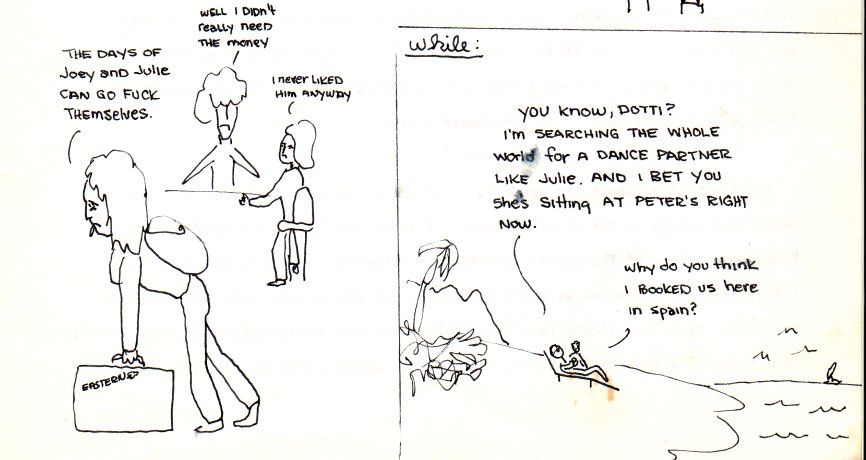 WELL I DIDN'T
REALLY NEED
THE MONEY
THE DAYS OF
JOEY AND JULIE
CAN GO FUCK
THEMSELVES.
I NEVER LIKED
HIM ANYWAY
EASTERN
WHILE:
YOU KNOW, DOTTI?
I'M SEARCHING THE WHOLE
WORLD FOR A DANCE PARTNER
LIKE JULIE. AND I BET YOU
SHE'S SITTING AT PETER'S RIGHT
NOW.
WHY DO YOU THINK
I BOOKED US HERE
IN SPAIN?